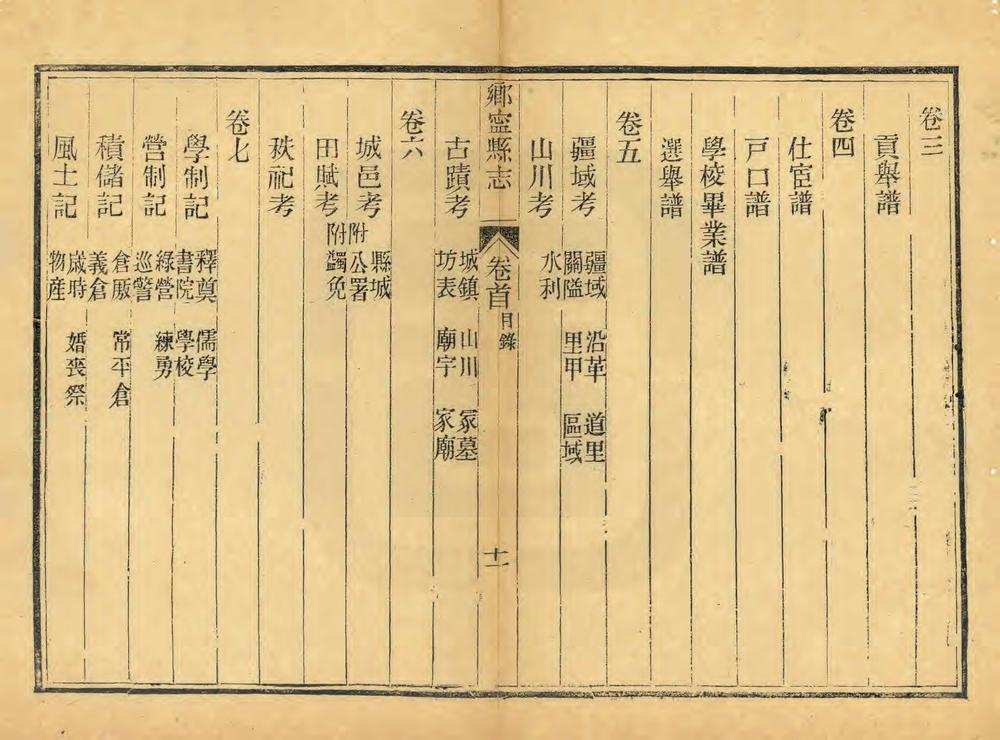 卷三
貢舉譜
卷四
仕宦譜
戸口譜
學校畢業譜
選舉譜
卷五
疆域考 疆域 沿革 道里
關隘 里甲 區域
山川考 水利
鄉寍縣志 卷首 目錄 十一
古蹟考 城鎮 山川 冢墓
坊表 廟宇 家廟
卷六
城邑考 縣城
附公署
田賦考 附蠲免
秩祀考
卷七
學制記 釋奠 儒學
書院 學校
營制記 綠營 練勇
巡警
積儲記 倉厫 常平倉
義倉
風土記 歲時 婚喪祭
物産